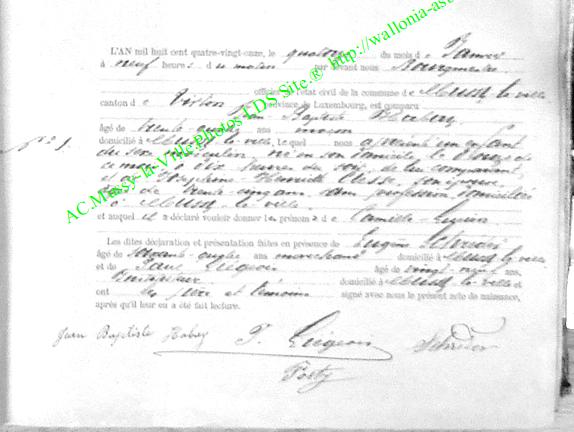 L'AN mil huit cent quatre-vingt-onze, le quatorze du mois de Janvier
à neuf heures du matin par devant nous Bourgmestre
officier de l'état civil de la commune de Mussy la ville
canton de Virton province de Luxembourg, est comparu
Jean Baptiste Habay
âgé de trente quatre ans maçon
N° 1.
domicilié à Mussy la ville, lequel nous a présenté un enfant
du sexe masculin, né en son domicile le douze de
ce mois à dix heures du soir, de lui comparant,
et de Joséphine Henriette son épouse
âgée de trente cinq ans, sans profession domiciliée
à Mussy la ville
et auquel il a déclaré vouloir donner les prénoms de Camille
Les dites déclaration et présentation faites en présence de Eugène Schréder
âgé de ans domicilié à Mussy la ville
et de Paul Liégeois âgé de vingt neuf ans,
Instituteur domicilié à Mussy la ville et
ont les père et témoins signé avec nous le présent acte de naissance,
après qu'il leur en a été fait lecture.
Jean Baptiste Habay P. Liégeois Schréder
AC.Mussy-la-Ville.Photos-LDS Site.® http://wallonia-as